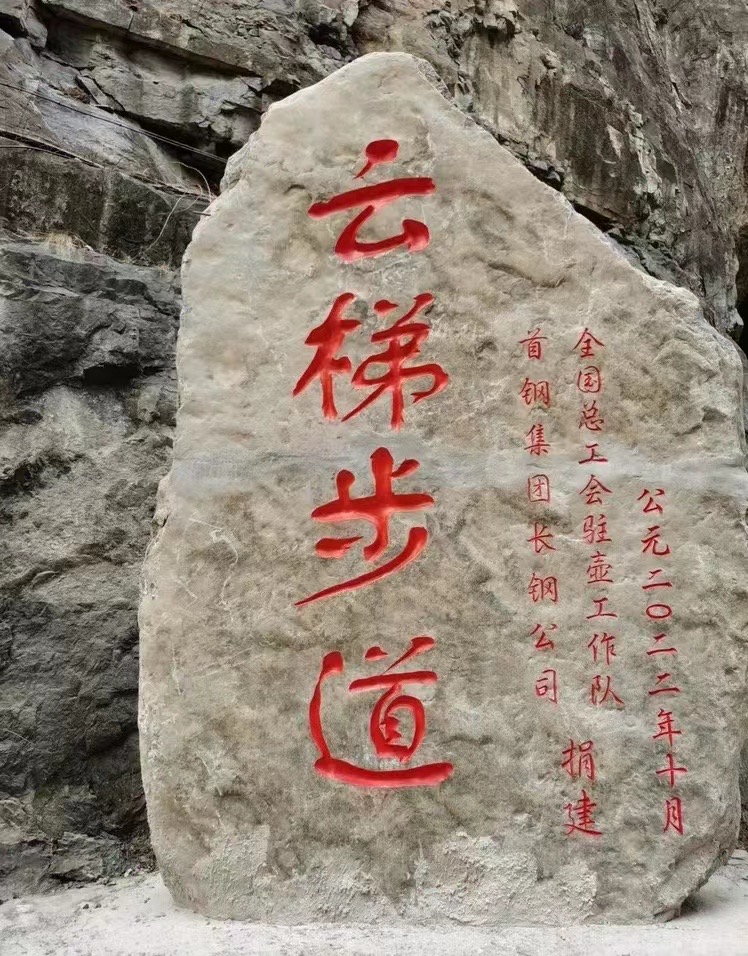 云梯步道
首钢集团长钢公司
全国总工会驻壶工作队
捐建
公元二〇二二年十月